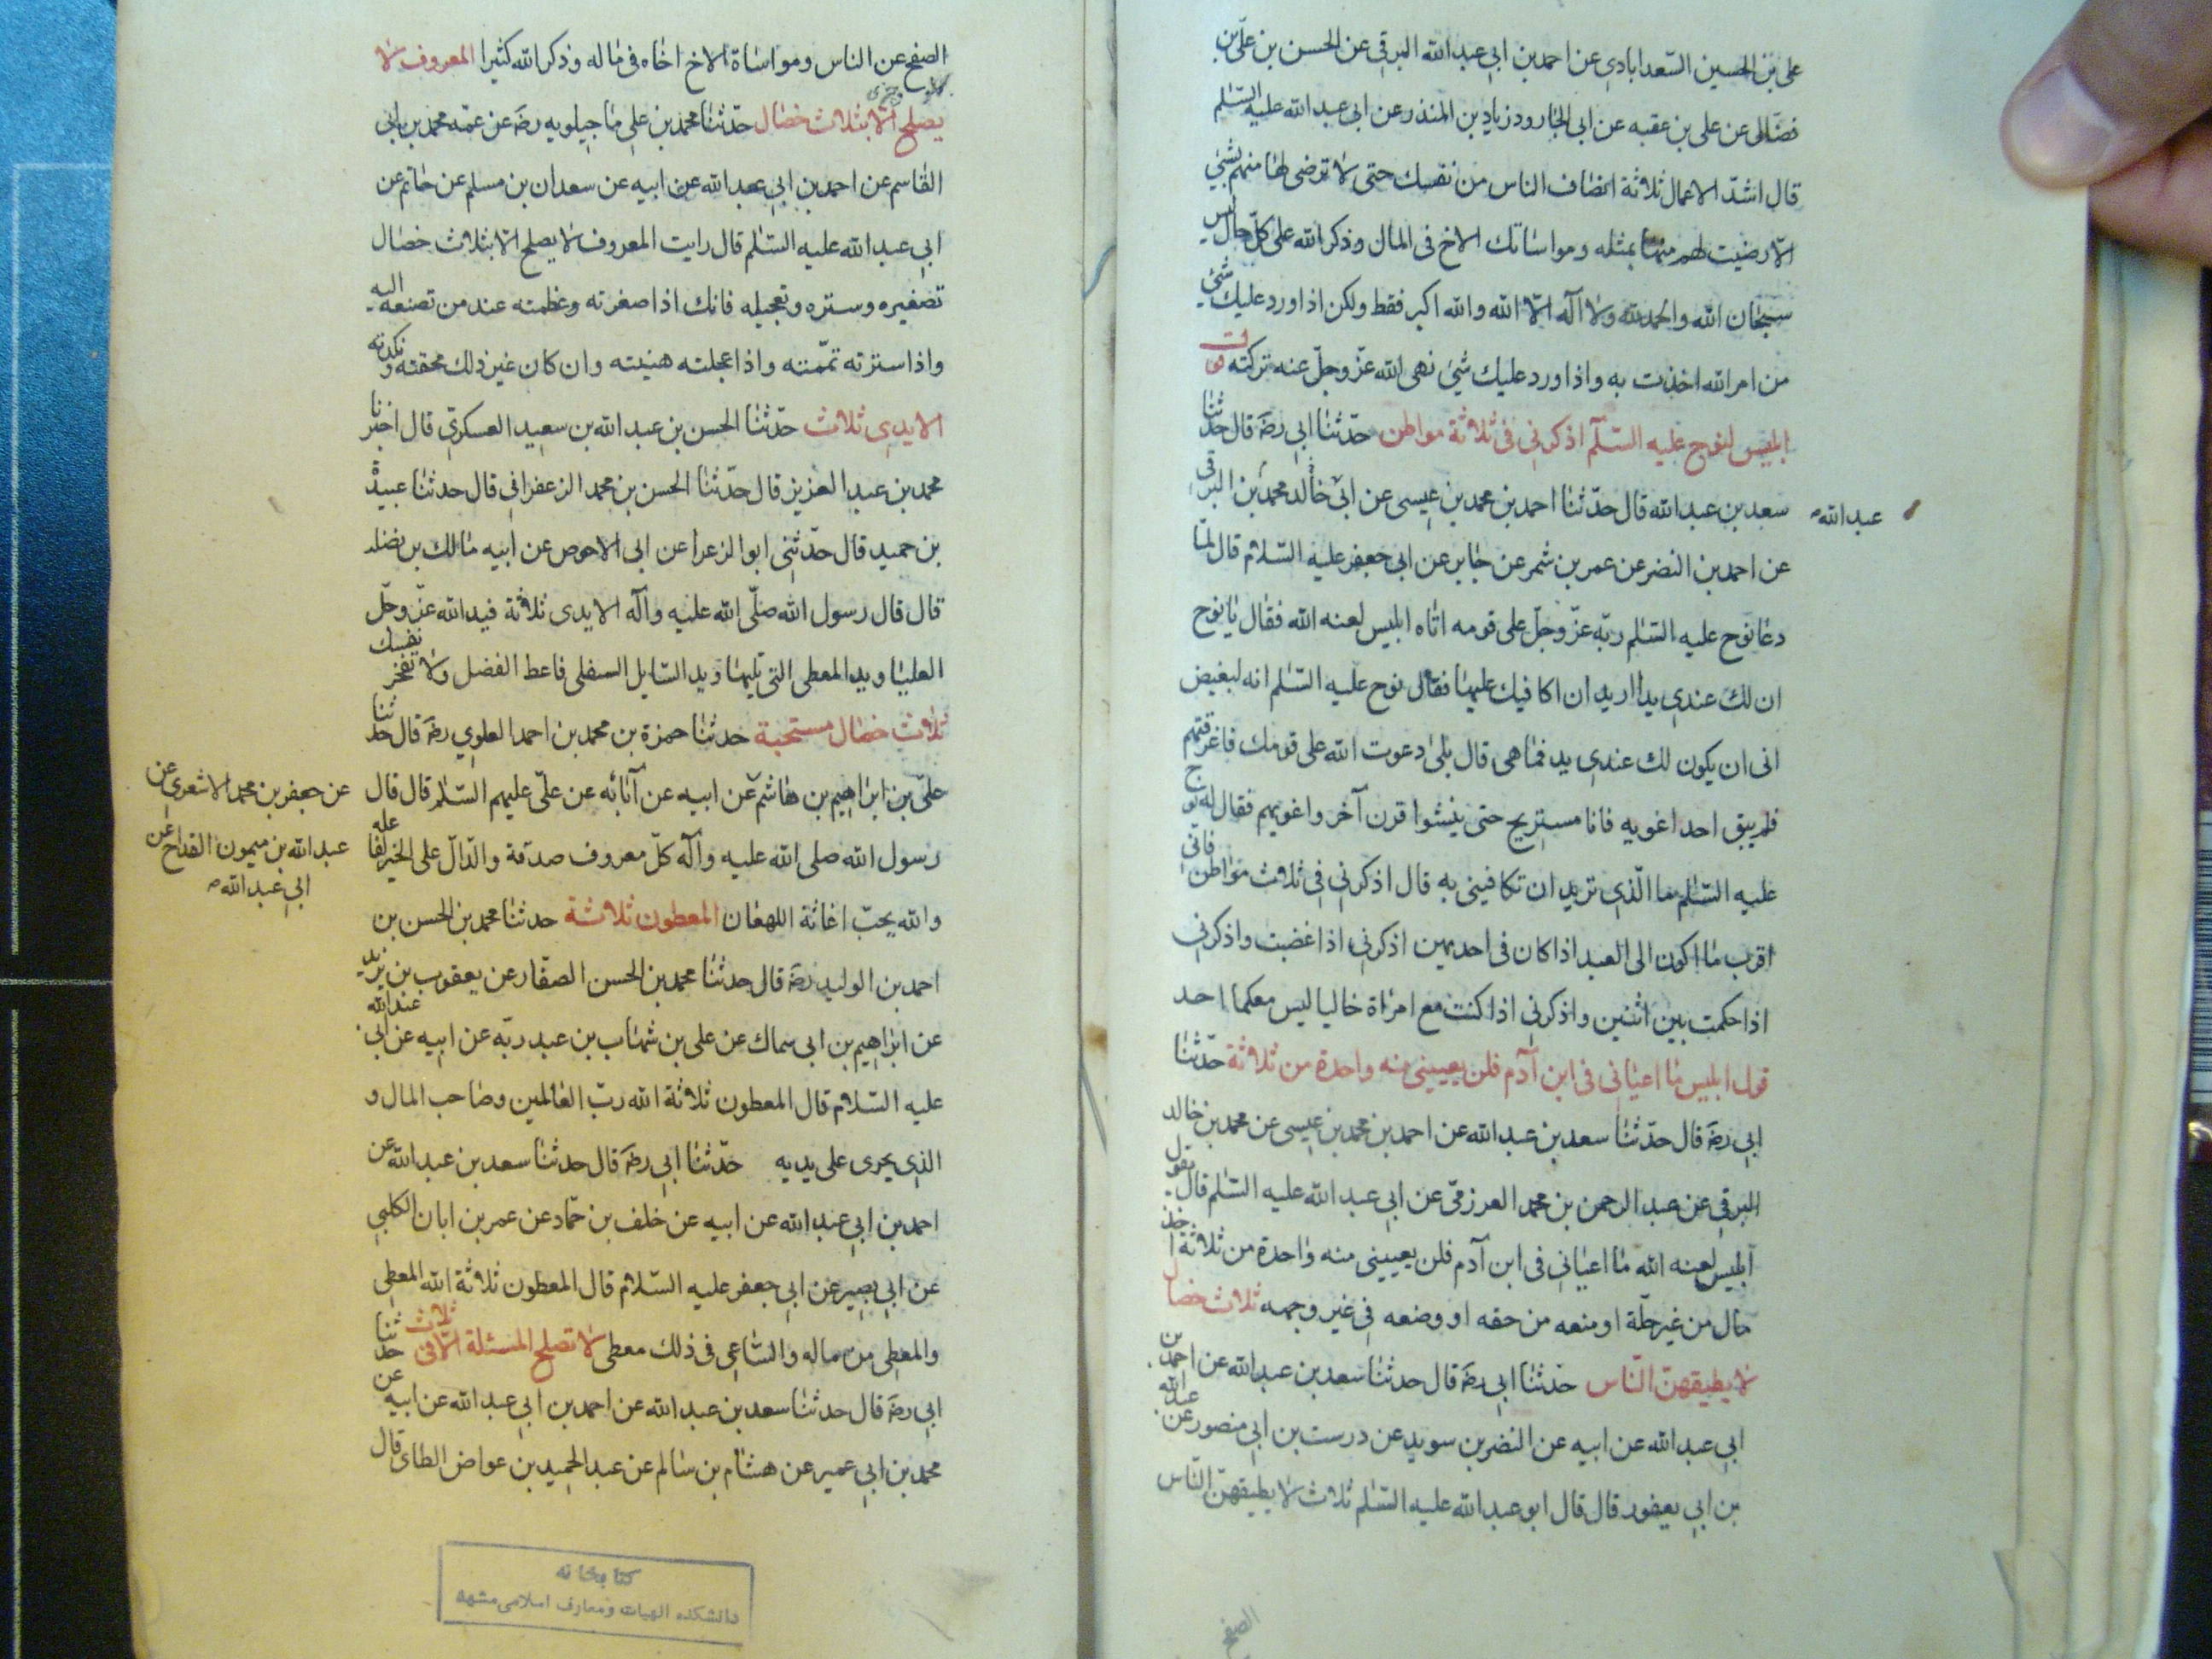 على بن الحسين السعدابادي عن احمد بن ابي عبد الله البرقي عن الحسن بن علي بن
فضال عن على بن عقبه عن ابى الجارود زياد بن المنذر عن ابى عبد الله عليه السلم
قال اشد الاعمال ثلاثة انصاف الناس من نفسك حتى لا ترضى لها منهم بشئ
الا رضيت لهم منها بمثله ومواساتك الاخ فى المال وذكر الله على كل حال ليس
سبحان الله والحمد لله ولا اله الا الله والله اكبر فقط ولكن اذا ورد عليك شئ
من امر الله اخذت به واذا ورد عليك شئ نهى الله عز وجل عنه تركته
ابليس لنوح عليه السلم اذكرنى فى ثلاثة مواطن حدثنا ابي رضه قال حدثنا
سعد بن عبد الله قال حدثنا احمد بن محمد بن عيسى عن ابى خالد محمد بن البرقي
عبد الله
عن احمد بن النضر عن عمر بن شمر عن جابر عن ابى جعفر عليه السلام قال لما
دعا نوح عليه السلم ربه عز وجل على قومه اتاه ابليس لعنه الله فقال يا نوح
ان لك عندي يدا اريد ان اكافيك عليها فقال نوح عليه السلم انه لبغيض
انى ان يكون لك عندي يد فما هى قال بلى دعوت الله على قومك فاغرقتهم
فلم يبق احد اغويه فانا مستريح حتى ينشوا قرن آخر واغويهم فقال له نوح
عليه السلم ما الذي تريد ان تكافينى به قال اذكرني فى ثلاث مواطن فانى
اقرب ما اكون الى العبد اذا كان فى احديهن اذكرني اذا غضبت واذكرنى
اذا حكمت بين اثنين واذكرني اذا كنت مع امراة خاليا ليس معكما احد
قول ابليس ما اعيانى فى ابن آدم فلن يعيينى منه واحدة من ثلاثة حدثنا
ابي رضه قال حدثنا سعد بن عبد الله عن احمد بن محمد بن عيسى عن محمد بن خالد
البرقى عن عبد الرحمن بن محمد العرزمى عن ابي عبد الله عليه السلم قال يقول
ابليس لعنه الله ما اعيانى فى ابن آدم فلن يعيينى منه واحدة من ثلاثة اخذ
مال من غير حلة او منعه من حقه او وضعه في غير وجهه ثلاث خصال
لا يطيقهن الناس حدثنا ابي رضه قال حدثنا سعد بن عبد الله عن احمد بن
ابي عبد الله عن ابيه عن النضر بن سويد عن درست بن ابي منصور عن عبد الله
بن ابي يعفور قال قال ابو عبد الله عليه السلم ثلاث لا يطيقهن الناس
الصفح
الصفح عن الناس ومواساة الاخ اخاه فى ماله وذكر الله كثيرا المعروف لا
يصلح الا بثلاث خصال حدثنا محمد بن على ما جيلويه رضه عن عمه محمد بن ابي
القاسم عن احمد بن ابي عبد الله عن ابيه عن سعدان بن مسلم عن حاتم عن
ابى عبد الله عليه السلم قال رايت المعروف لا يصلح الا بثلاث خصال
تصغيره وستره وتعجيله فانك اذا صغرته وعظمته عند من تصنعه اليه
واذا سترته تممته واذا عجلته هنيته وان كان غير ذلك محقته ونكدته
الايدي ثلاث حدثنا الحسن بن عبد الله بن سعيد العسكري قال اخبرنا
محمد بن عبد العزيز قال حدثنا الحسن بن محمد الزعفرانى قال حدثنا عبيدة
بن حميد قال حدثنى ابو الزعرا عن ابى الاحوص عن ابيه مالك بن نضله
قال قال رسول الله صلى الله عليه وآله الايدى ثلاثة فيد الله عز وجل
العليا ويد المعطى التى تليها ويد السايل السفلى فاعط الفضل ولا تعجز نفسك
ثلاث خصال مستحبة حدثنا حمزة بن محمد بن احمد العلوي رضه قال حدثنا
على بن ابراهيم بن هاشم عن ابيه عن آبائه عن على عليهم السلم قال قال
عن جعفر بن محمد الاشعري عن
عبد الله بن ميمون القداح عن
ابي عبد الله
رسول الله صلى الله عليه وآله كل معروف صدقة والدال على الخير كفاعله
والله يحب اغاثة اللهفان المعطون ثلاثة حدثنا محمد بن الحسن بن
احمد بن الوليد رضه قال حدثنا محمد بن الحسن الصفار عن يعقوب بن يزيد
عن ابراهيم بن ابى سماك عن على بن شهاب بن عبد ربه عن ابيه عن ابى عبد الله
عليه السلام قال المعطون ثلاثة الله رب العالمين وصاحب المال و
الذي يجرى على يديه حدثنا ابي رضه قال حدثنا سعد بن عبد الله عن
احمد بن ابي عبد الله عن ابيه عن خلف بن حماد عن عمر بن ابان الكلبي
عن ابي بصير عن ابي جعفر عليه السلام قال المعطون ثلاثة الله المعطى
والمعطى من ماله والساعى فى ذلك معطى لا تصلح المسئلة الا فى ثلاث حدثنا
ابى رضه قال حدثنا سعد بن عبد الله عن احمد بن ابي عبد الله عن ابيه عن
محمد بن ابي عمير عن هشام بن سالم عن عبد الحميد بن عواض الطاى قال
كتابخانه
دانشكده الهيات ومعارف اسلامى مشهد